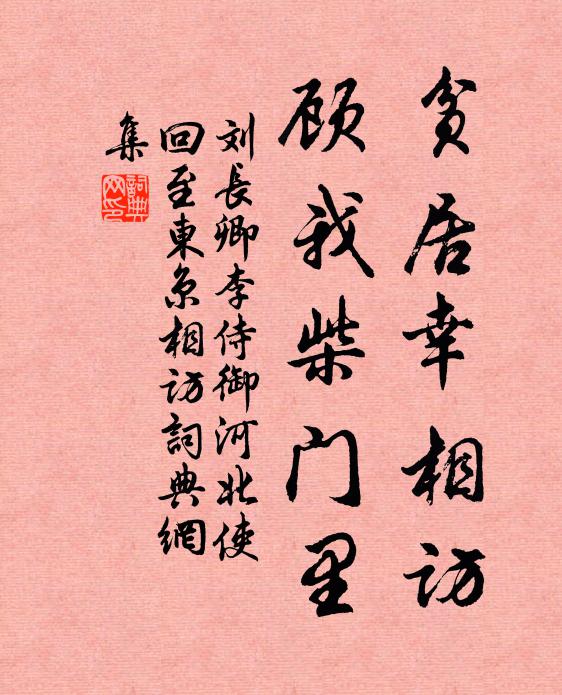 贫居幸相访
顾我柴门里
刘長卿李侍御河北使
回至東京相访詞典網
集
詞典
网印